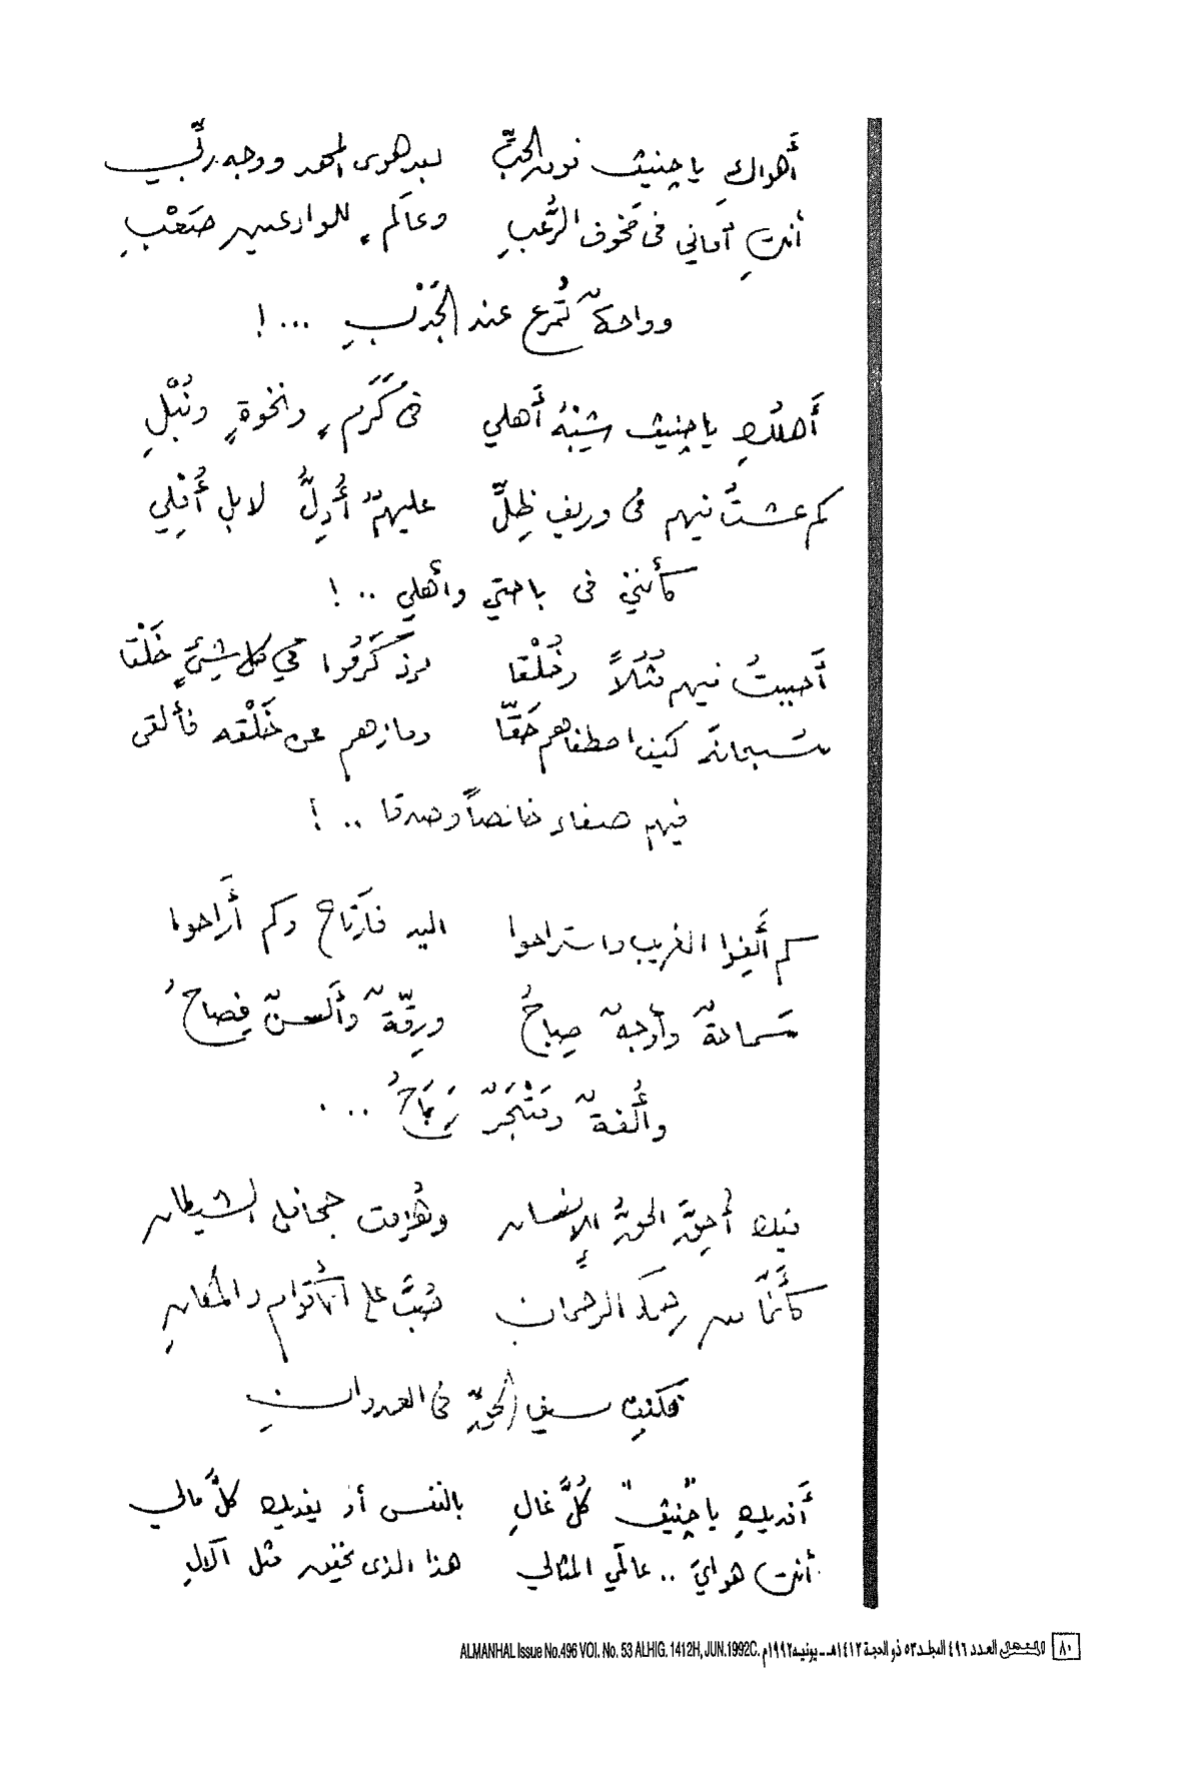 أهواكِ يا جنيف نور الحبِّ بعد هوى المجد ووجه ربِّي
أنتِ أماني في مَخوف الرُّعبِ وعالَمٍ للوادعين صَعْبِ
وواحةٌ تُمرع عند الجَدْبِ ...!
أَهلكِ يا جنيف شِبْهُ أَهلي في كَرَمٍ ونخوةٍ ونُبْلِ
كم عشتُ فيهم في وريفِ ظِلِّ عليهمُ أُدِلُّ لا بل أُمْلِي
كأنني في باحتي وأهلي ..!
أَحببتُ فيهم مُثُلاً وخُلْقا مذ كَرَمُوا في كل شيءٍ خَلْقا
سبحانَه كيف اصطفاهم حَقّا ومازهم عن خَلْقه فألقى
فيهم صفاء خالصاً وصدقا ..!
كم أَلِفوا الغريب واستراحوا اليه فارتاح وكم أَراحوا
سَماحةٌ وأوجهٌ صِباحُ ورِقّةٌ وأَلسنٌ فِصاحُ
وأُلفةٌ ومَتْجَرٌ رَبَاحُ ...
فيك أُحِقَّ الحقُّ للإنسان وهُزمت جحافل الشيطان
كأنَّما من رحمة الرحمان صُبَّ على الأقوام والمكانِ
فكنتِ سيف الحقِّ في العدوانِ
أَفديكِ يا "جنيف" كُلَّ غالِ بالنفس أو يفديك كلُّ مالي
أنتِ هوايَ .. عالَمي المثالي هذا الذي تخفين مثل آلالِ
٨٠ المنهل العدد ٤٩٦ المجلد ٥٣ ذو الحجة ١٤١٢هـ - يونيه ١٩٩٢م ALMANHAL Issue No.496 VOl. No. 53 ALHIG. 1412H, JUN.1992C.